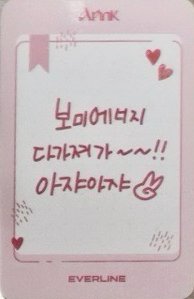 Apink
보미에너지
다가져가~~!!
아쟈아쟈
EVERLINE